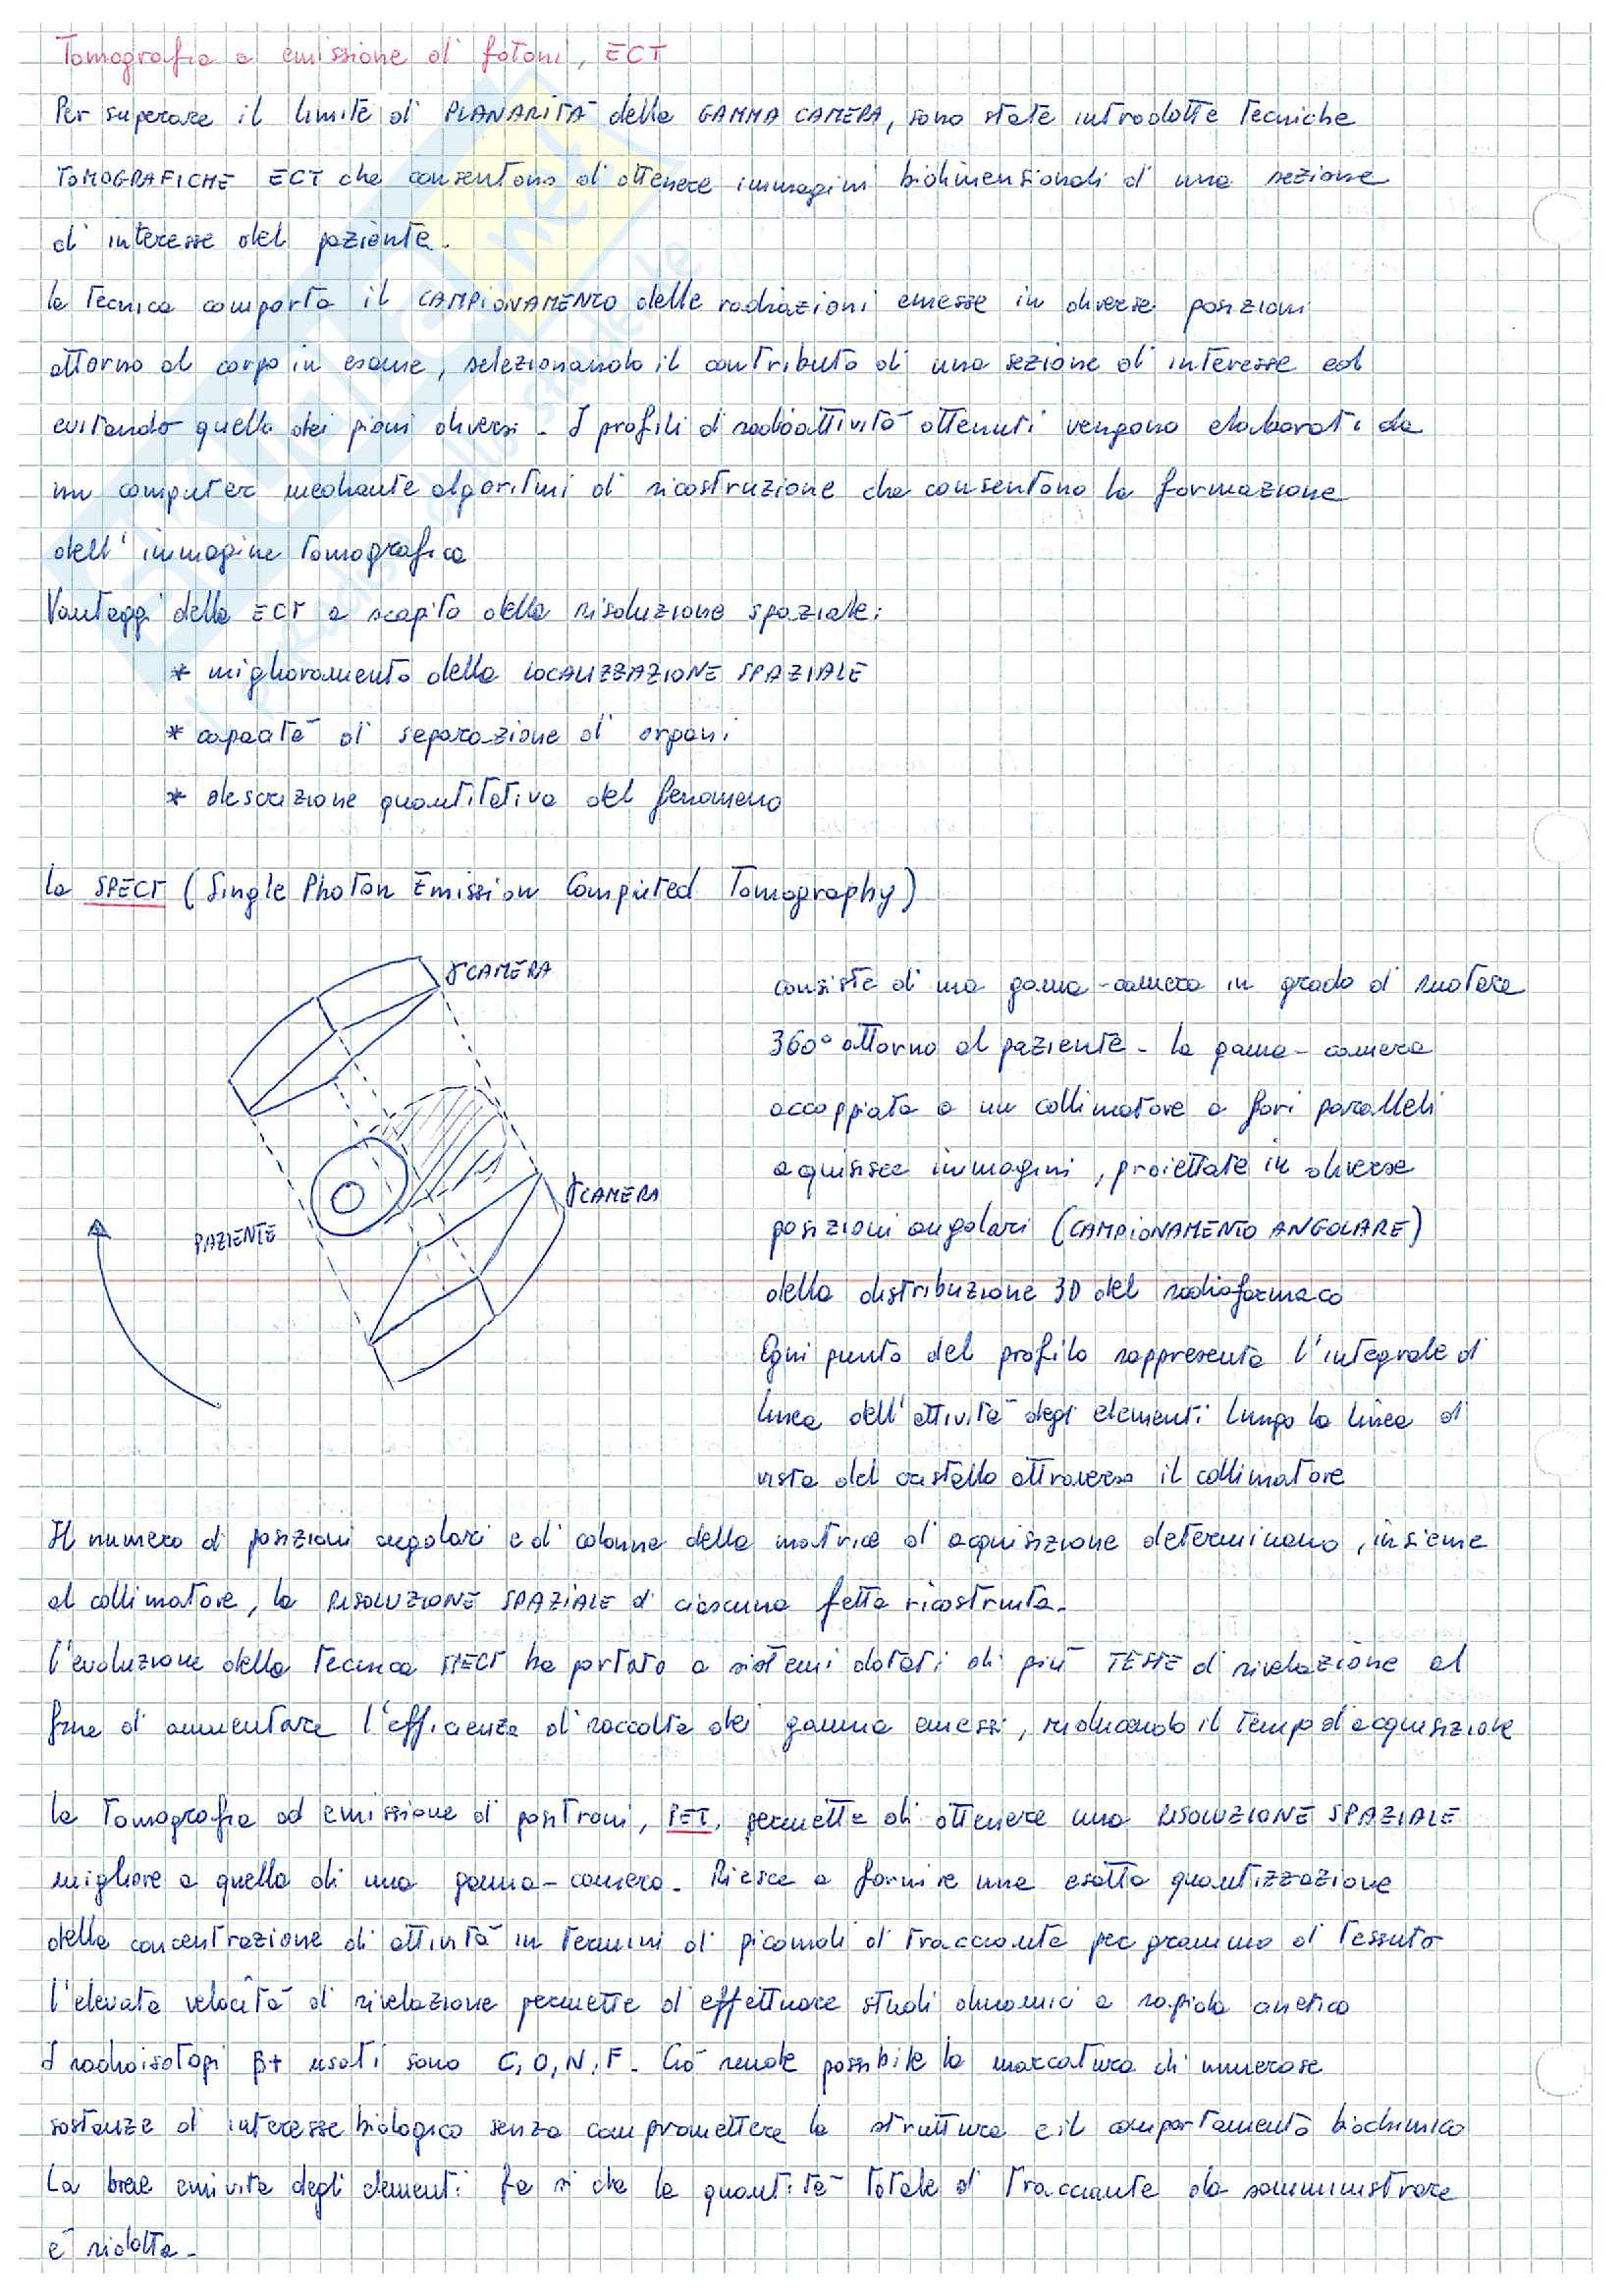 Tomografia a emissione di fotoni, ECT
Per superare il limite di PLANARITÀ della GAMMA CAMERA, sono state introdotte tecniche
TOMOGRAFICHE ECT che consentono di ottenere immagini bidimensionali di una sezione
di interesse del paziente.
la tecnica comporta il CAMPIONAMENTO delle radiazioni emesse in diverse posizioni
attorno al corpo in esame, selezionando il contributo di una sezione di interesse ed
evitando quello dei piani diversi. I profili di radioattività ottenuti vengono elaborati da
un computer mediante algoritmi di ricostruzione che consentono la formazione
dell'immagine tomografica
Vantaggi della ECT a scapito della risoluzione spaziale:
* miglioramento della LOCALIZZAZIONE SPAZIALE
* capacità di separazione di organi
* descrizione quantitativa del fenomeno
la SPECT (Single Photon Emission Computed Tomography)
γCAMERA
consiste di una gamma-camera in grado di ruotare
360° attorno al paziente. la gamma-camera
accoppiata a un collimatore a fori paralleli
acquisisce immagini, proiettate in diverse
γCAMERA
PAZIENTE
posizioni angolari (CAMPIONAMENTO ANGOLARE)
della distribuzione 3D del radiofarmaco
Ogni punto del profilo rappresenta l'integrale di
linea dell'attività degli elementi lungo la linea di
vista del cristallo attraverso il collimatore
Il numero di posizioni angolari e di colonne della matrice di acquisizione determinano, insieme
al collimatore, la RISOLUZIONE SPAZIALE di ciascuna fetta ricostruita.
l'evoluzione della tecnica SPECT ha portato a sistemi dotati di più TESTE di rivelazione al
fine di aumentare l'efficienza di raccolta dei gamma emessi, riducendo il tempo d'acquisizione
la tomografia ad emissione di positroni, PET, permette di ottenere una RISOLUZIONE SPAZIALE
migliore a quella di una gamma-camera. Riesce a fornire una esatta quantizzazione
della concentrazione di attività in termini di picomoli di tracciante per grammo di tessuto
l'elevata velocità di rivelazione permette di effettuare studi dinamici a rapida cinetica
I radioisotopi β+ usati sono C, O, N, F. Ciò rende possibile la marcatura di numerose
sostanze di interesse biologico senza compromettere la struttura e il comportamento biochimico
La breve emivita degli elementi fa si che la quantità totale di tracciante da somministrare
è ridotta.